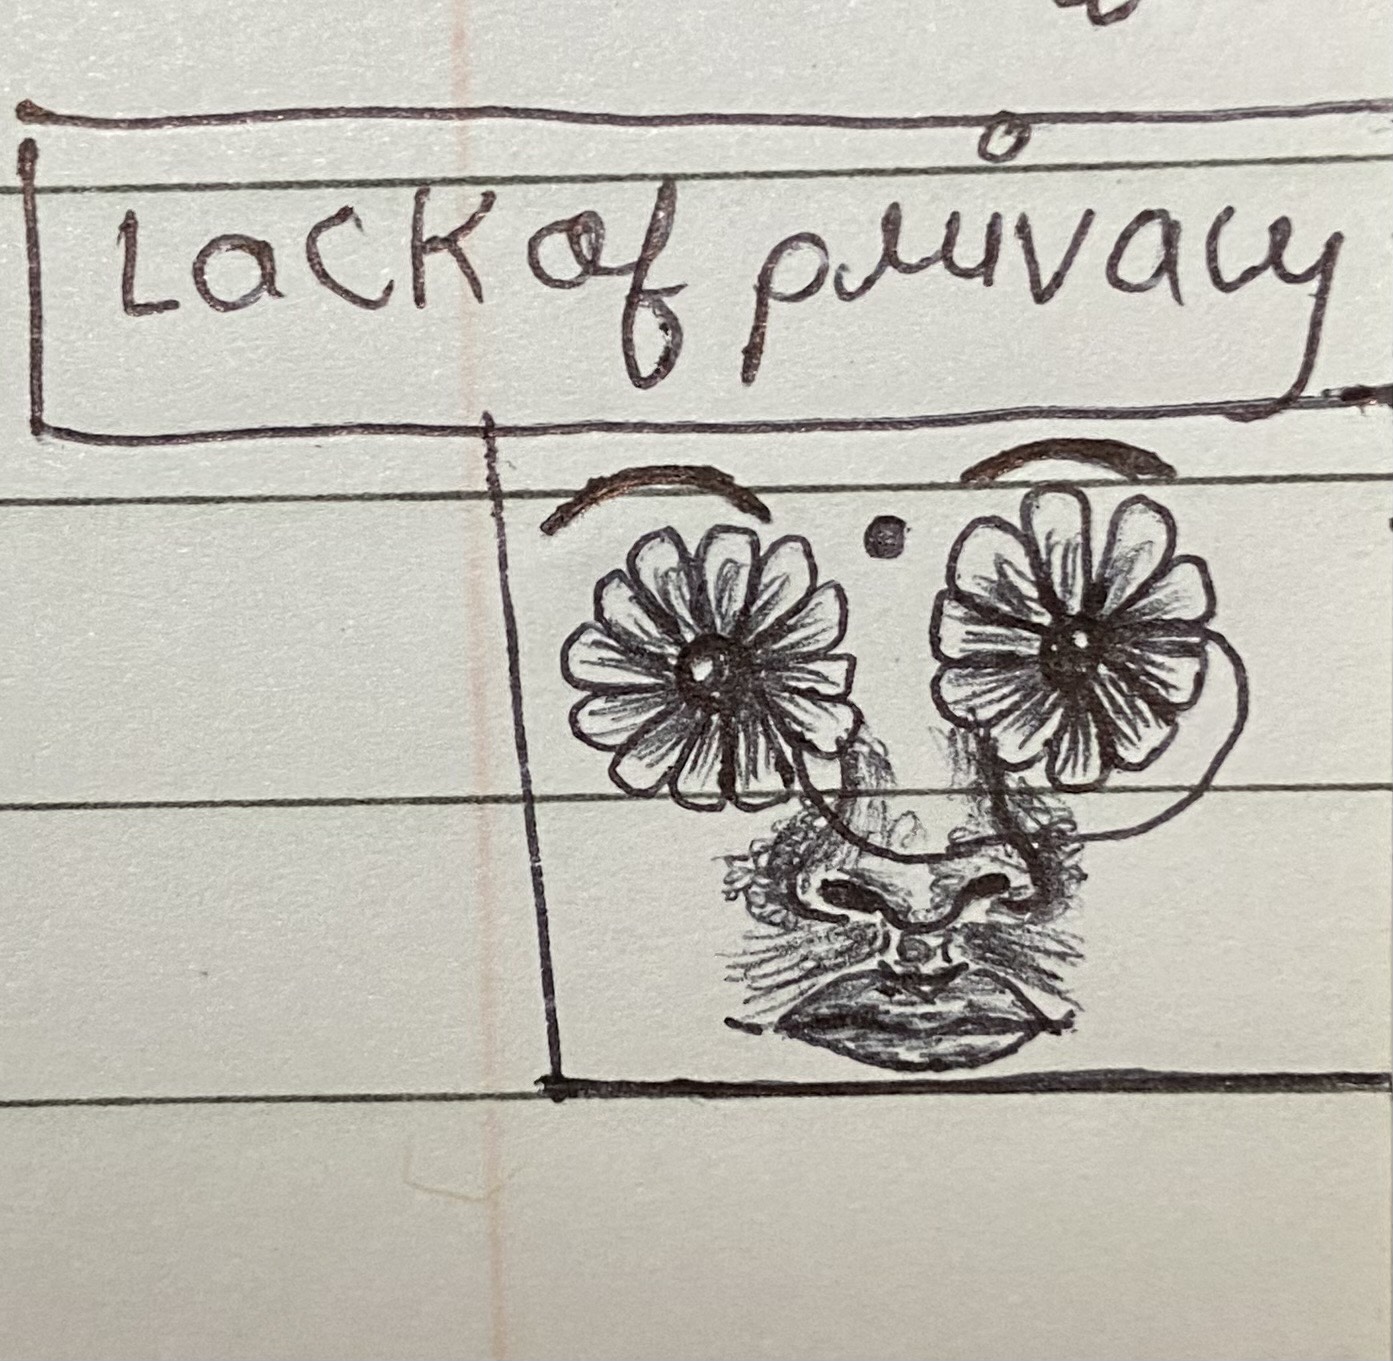 Lack of privacy